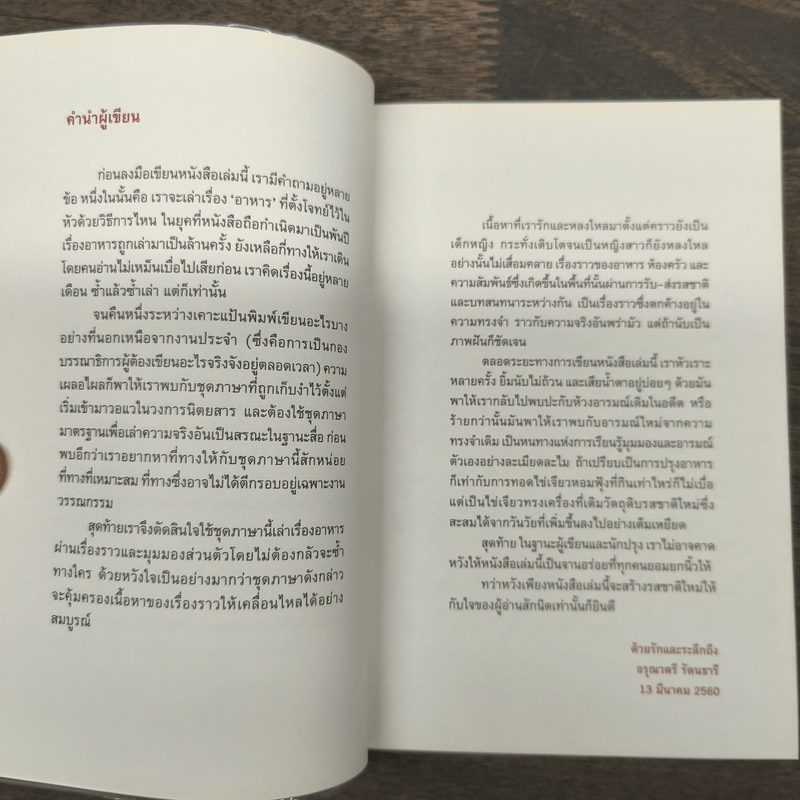 คำนำผู้เขียน
ก่อนลงมือเขียนหนังสือเล่มนี้ เรามีคำถามอยู่หลาย
ข้อ หนึ่งในนั้นคือ เราจะเล่าเรื่อง ‘อาหาร’ ที่ตั้งโจทย์ไว้ใน
หัวด้วยวิธีการไหน ในยุคที่หนังสือถือกำเนิดมาเป็นพันปี
เรื่องอาหารถูกเล่ามาเป็นล้านครั้ง ยังเหลือกี่ทางให้เราเดิน
โดยคนอ่านไม่เหม็นเบื่อไปเสียก่อน เราคิดเรื่องนี้อยู่หลาย
เดือน ซ้ำแล้วซ้ำเล่า แต่ก็เท่านั้น
จนคืนหนึ่งระหว่างเคาะแป้นพิมพ์เขียนอะไรบาง
อย่างที่นอกเหนือจากงานประจำ (ซึ่งคือการเป็นกอง
บรรณาธิการผู้ต้องเขียนอะไรจริงจังอยู่ตลอดเวลา) ความ
เผลอไผลก็พาให้เราพบกับชุดภาษาที่ถูกเก็บงำไว้ตั้งแต่
เริ่มเข้ามาอวแอในวงการนิตยสาร และต้องใช้ชุดภาษา
มาตรฐานเพื่อเล่าความจริงอันเป็นสรณะในฐานะสื่อ ก่อน
พบอีกว่าเราอยากหาที่ทางให้กับชุดภาษานี้สักหน่อย
ที่ทางที่เหมาะสม ที่ทางซึ่งอาจไม่ได้ตีกรอบอยู่เฉพาะงาน
วรรณกรรม
สุดท้ายเราจึงตัดสินใจใช้ชุดภาษานี้เล่าเรื่องอาหาร
ผ่านเรื่องราวและมุมมองส่วนตัวโดยไม่ต้องกลัวจะซ้ำ
ทางใคร ด้วยหวังใจเป็นอย่างมากว่าชุดภาษาดังกล่าว
จะคุ้มครองเนื้อหาของเรื่องราวให้เคลื่อนไหลได้อย่าง
สมบูรณ์
เนื้อหาที่เรารักและหลงใหลมาตั้งแต่คราวยังเป็น
เด็กหญิง กระทั่งเติบโตจนเป็นหญิงสาวก็ยังหลงใหล
อย่างนั้นไม่เสื่อมคลาย เรื่องราวของอาหาร ห้องครัว และ
ความสัมพันธ์ซึ่งเกิดขึ้นในพื้นที่นั้นผ่านการรับ-ส่งรสชาติ
และบทสนทนาระหว่างกัน เป็นเรื่องราวซึ่งตกค้างอยู่ใน
ความทรงจำ ราวกับความจริงอันพร่ามัว แต่ถ้านับเป็น
ภาพฝันก็ชัดเจน
ตลอดระยะทางการเขียนหนังสือเล่มนี้ เราหัวเราะ
หลายครั้ง ยิ้มนับไม่ถ้วน และเสียน้ำตาอยู่บ่อยๆ ด้วยมัน
พาให้เรากลับไปพบปะกับห้วงอารมณ์เดิมในอดีต หรือ
ร้ายกว่านั้นมันพาให้เราพบกับอารมณ์ใหม่จากความ
ทรงจำเดิม เป็นหนทางแห่งการเรียนรู้มุมมองและอารมณ์
ตัวเองอย่างละเมียดละไม ถ้าเปรียบเป็นการปรุงอาหาร
ก็เท่ากับการทอดไข่เจียวหอมฟุ้งที่กินเท่าไหร่ก็ไม่เบื่อ
แต่เป็นไข่เจียวทรงเครื่องที่เติมวัตถุดิบรสชาติใหม่ซึ่ง
สะสมได้จากวันวัยที่เพิ่มขึ้นลงไปอย่างเต็มเหยียด
สุดท้าย ในฐานะผู้เขียนและนักปรุง เราไม่อาจคาด
หวังให้หนังสือเล่มนี้เป็นจานอร่อยที่ทุกคนยอมยกนิ้วให้
ทว่าหวังเพียงหนังสือเล่มนี้จะสร้างรสชาติใหม่ให้
กับใจของผู้อ่านสักนิดเท่านั้นก็ยินดี
ด้วยรักและระลึกถึง
อรุณวตรี รัตนธารี
13 มีนาคม 2560